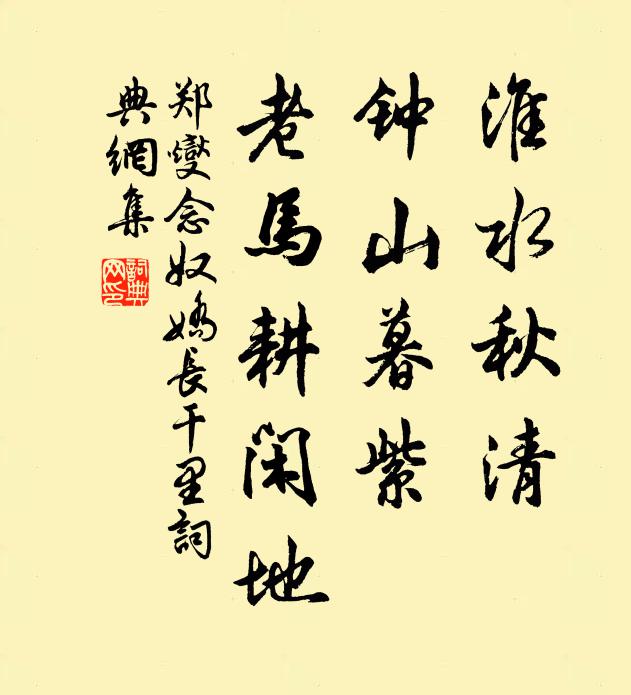 淮水秋清
钟山暮紫
老馬耕闲地
郑燮念奴嬌長干里詞
典網集
詞典网印